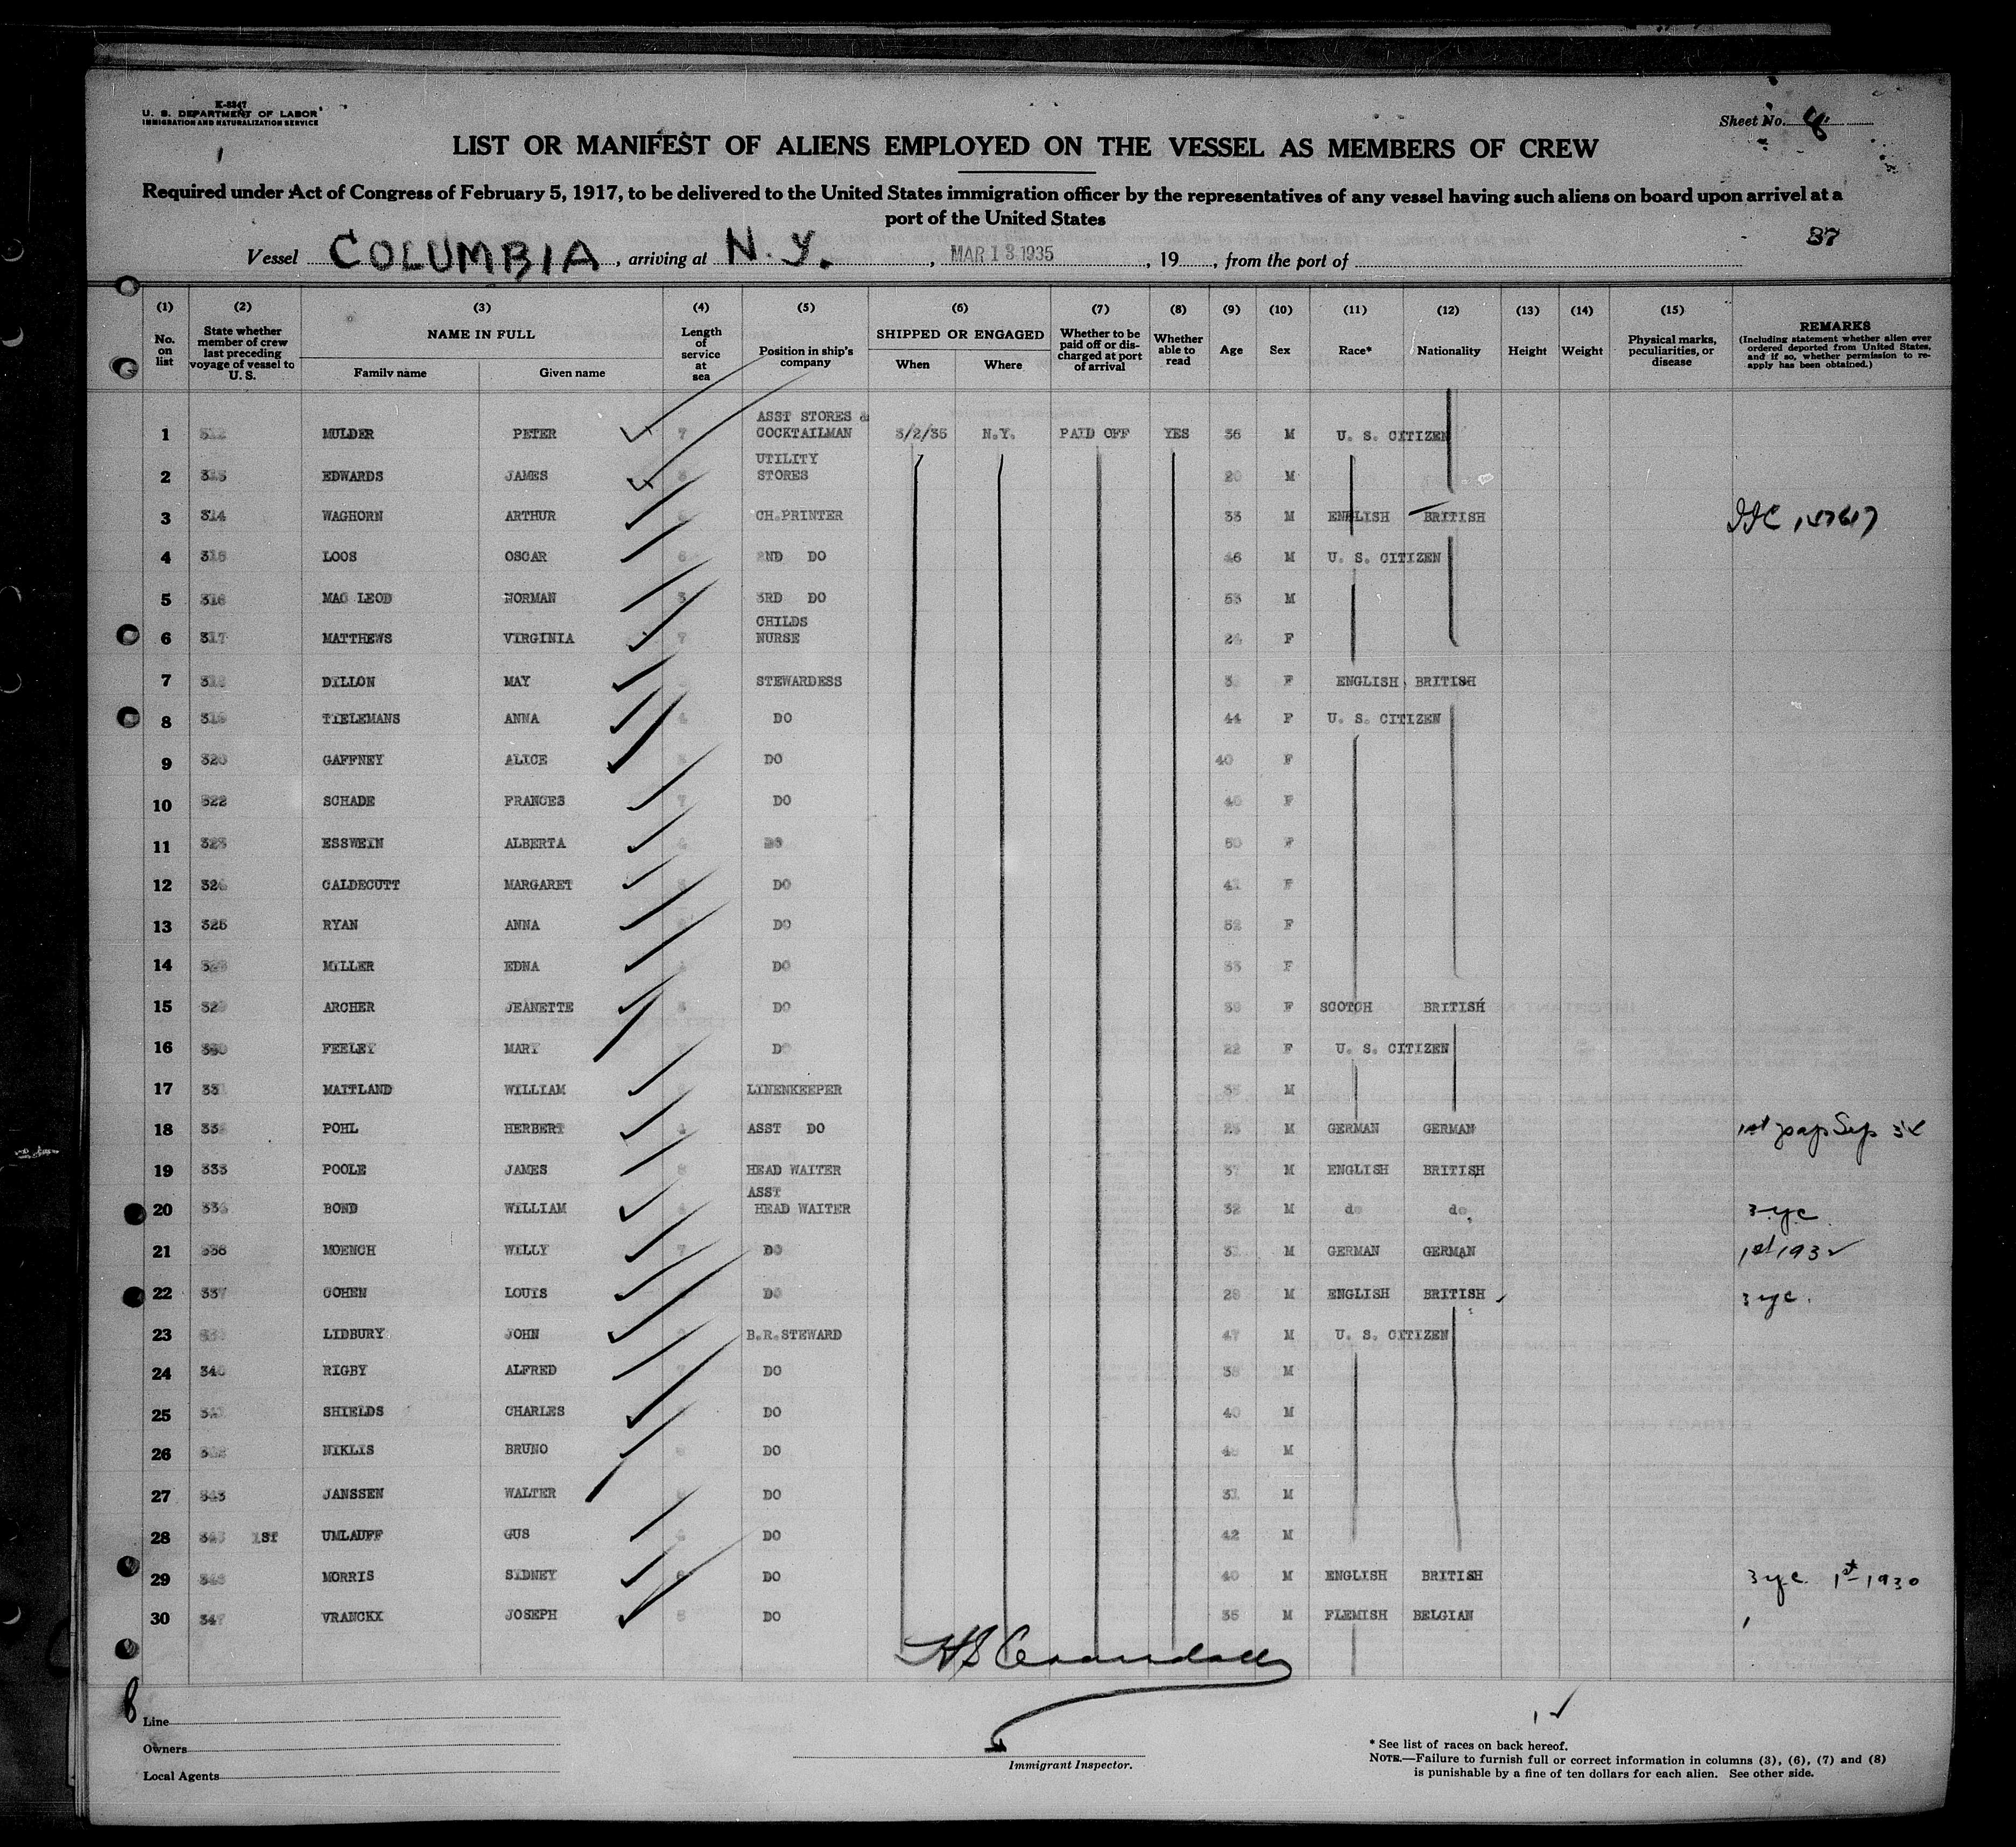 K-8347
U. S. DEPARTMENT OF LABOR
IMMIGRATION AND NATURALIZATION SERVICE
Sheet No. 8
LIST OR MANIFEST OF ALIENS EMPLOYED ON THE VESSEL AS MEMBERS OF CREW
Required under Act of Congress of February 5, 1917, to be delivered to the United States immigration officer by the representatives of any vessel having such aliens on board upon arrival at a
port of the United States
87
Vessel COLUMBIA, arriving at N.Y., MAR 13 1935, 19, from the port of
(1) (2) (3) (4) (5) (6) (7) (8) (9) (10) (11) (12) (13) (14) (15)
No. on list
State whether member of crew last preceding voyage of vessel to U. S.
NAME IN FULL
Family name Given name
Length of service at sea
Position in ship's company
SHIPPED OR ENGAGED
When Where
Whether to be paid off or discharged at port of arrival
Whether able to read
Age
Sex
Race*
Nationality
Height
Weight
Physical marks, peculiarities, or disease
REMARKS
(Including statement whether alien ever ordered deported from United States, and if so, whether permission to reapply has been obtained.)
1 MULDER PETER 7 ASST STORES & COCKTAILMAN 3/2/35 N.Y. PAID OFF YES 36 M U. S. CITIZEN
2 EDWARDS JAMES UTILITY STORES 20 M
3 314 WAGHORN ARTHUR CH.PRINTER 33 M ENGLISH BRITISH
4 LOOS OSCAR 2ND DO 46 M U. S. CITIZEN
5 316 MAC LEOD NORMAN 3 3RD DO 53 M
6 317 MATTHEWS VIRGINIA 7 CHILDS NURSE F
7 DILLON MAY STEWARDESS F ENGLISH BRITISH
8 319 TIELEMANS ANNA 4 DO 44 F U. S. CITIZEN
9 320 GAFFNEY ALICE DO 40 F
10 322 SCHADE FRANCES 7 DO F
11 323 ESSWEIN ALBERTA DO 50 F
12 CALDECUTT MARGARET DO F
13 325 RYAN ANNA DO 52 F
14 MILLER EDNA DO 33 F
15 ARCHER JEANETTE DO F SCOTCH BRITISH
16 330 FEELEY MARY DO 22 F U. S. CITIZEN
17 MAITLAND WILLIAM LINENKEEPER M
18 POHL HERBERT ASST DO M GERMAN GERMAN
19 333 POOLE JAMES 8 HEAD WAITER 37 M ENGLISH BRITISH
20 BOND WILLIAM ASST HEAD WAITER 32 M do do
21 MOENCH WILLY 7 DO M GERMAN GERMAN 1st 1932
22 337 COHEN LOUIS DO M ENGLISH BRITISH
23 LIDBURY JOHN B.R.STEWARD 47 M U. S. CITIZEN
24 340 RIGBY ALFRED 7 DO 38 M
25 SHIELDS CHARLES DO 40 M
26 NIKLIS BRUNO DO M
27 343 JANSSEN WALTER DO 31 M
28 1ST UMLAUFF GUS DO 42 M
29 MORRIS SIDNEY 6 DO 40 M ENGLISH BRITISH 1st 1930
30 347 VRANCKX JOSEPH DO 35 M FLEMISH BELGIAN
8
Line
Owners
Local Agents
Immigrant Inspector.
* See list of races on back hereof.
NOTE.—Failure to furnish full or correct information in columns (3), (6), (7) and (8)
is punishable by a fine of ten dollars for each alien. See other side.